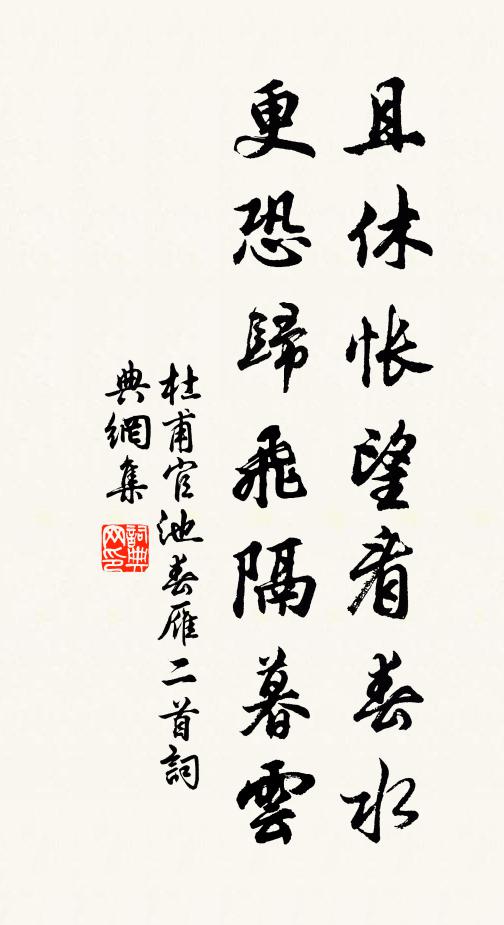 且休悵望看春水
更恐歸飛隔暮雲
杜甫官池春雁二首詞
典網集
詞典
網印